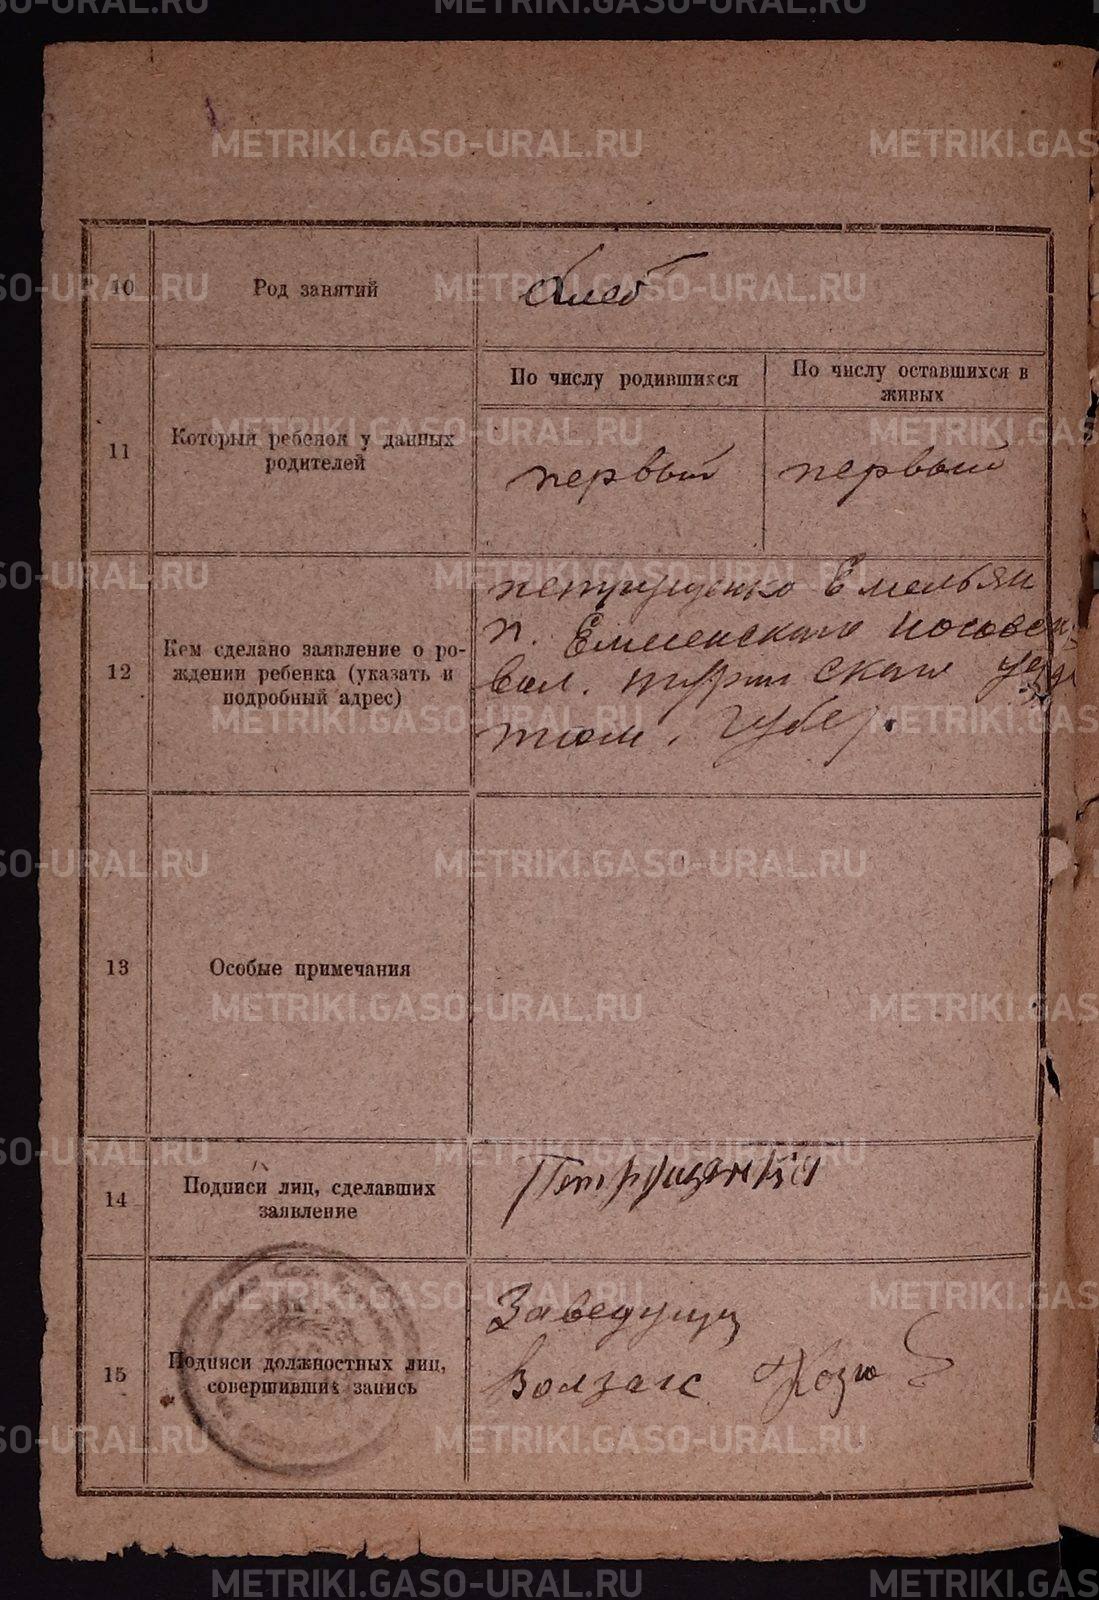 METRIKI.GASO-URAL.RU
10
Род занятий
хлеб
11
Который ребенок у данных
родителей
По числу родившихся
По числу оставшихся в
живых
первый
первый
12
Кем сделано заявление о ро-
ждении ребенка (указать и
подробный адрес)
Емельян
п.
вол. ского
тюм. губер.
13
Особые примечания
14
Подписи лиц, сделавших
заявление
15
Подписи должностных лиц,
совершивших запись
Заведущи
Волзагс